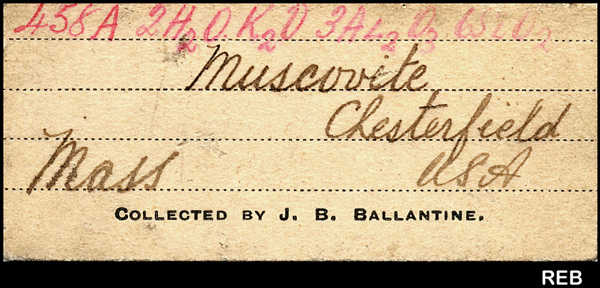 458A 2H₂O.K₂O 3AL₂O₃ 6SiO₂
Muscovite
Chesterfield
Mass USA
COLLECTED BY J. B. BALLANTINE.
REB